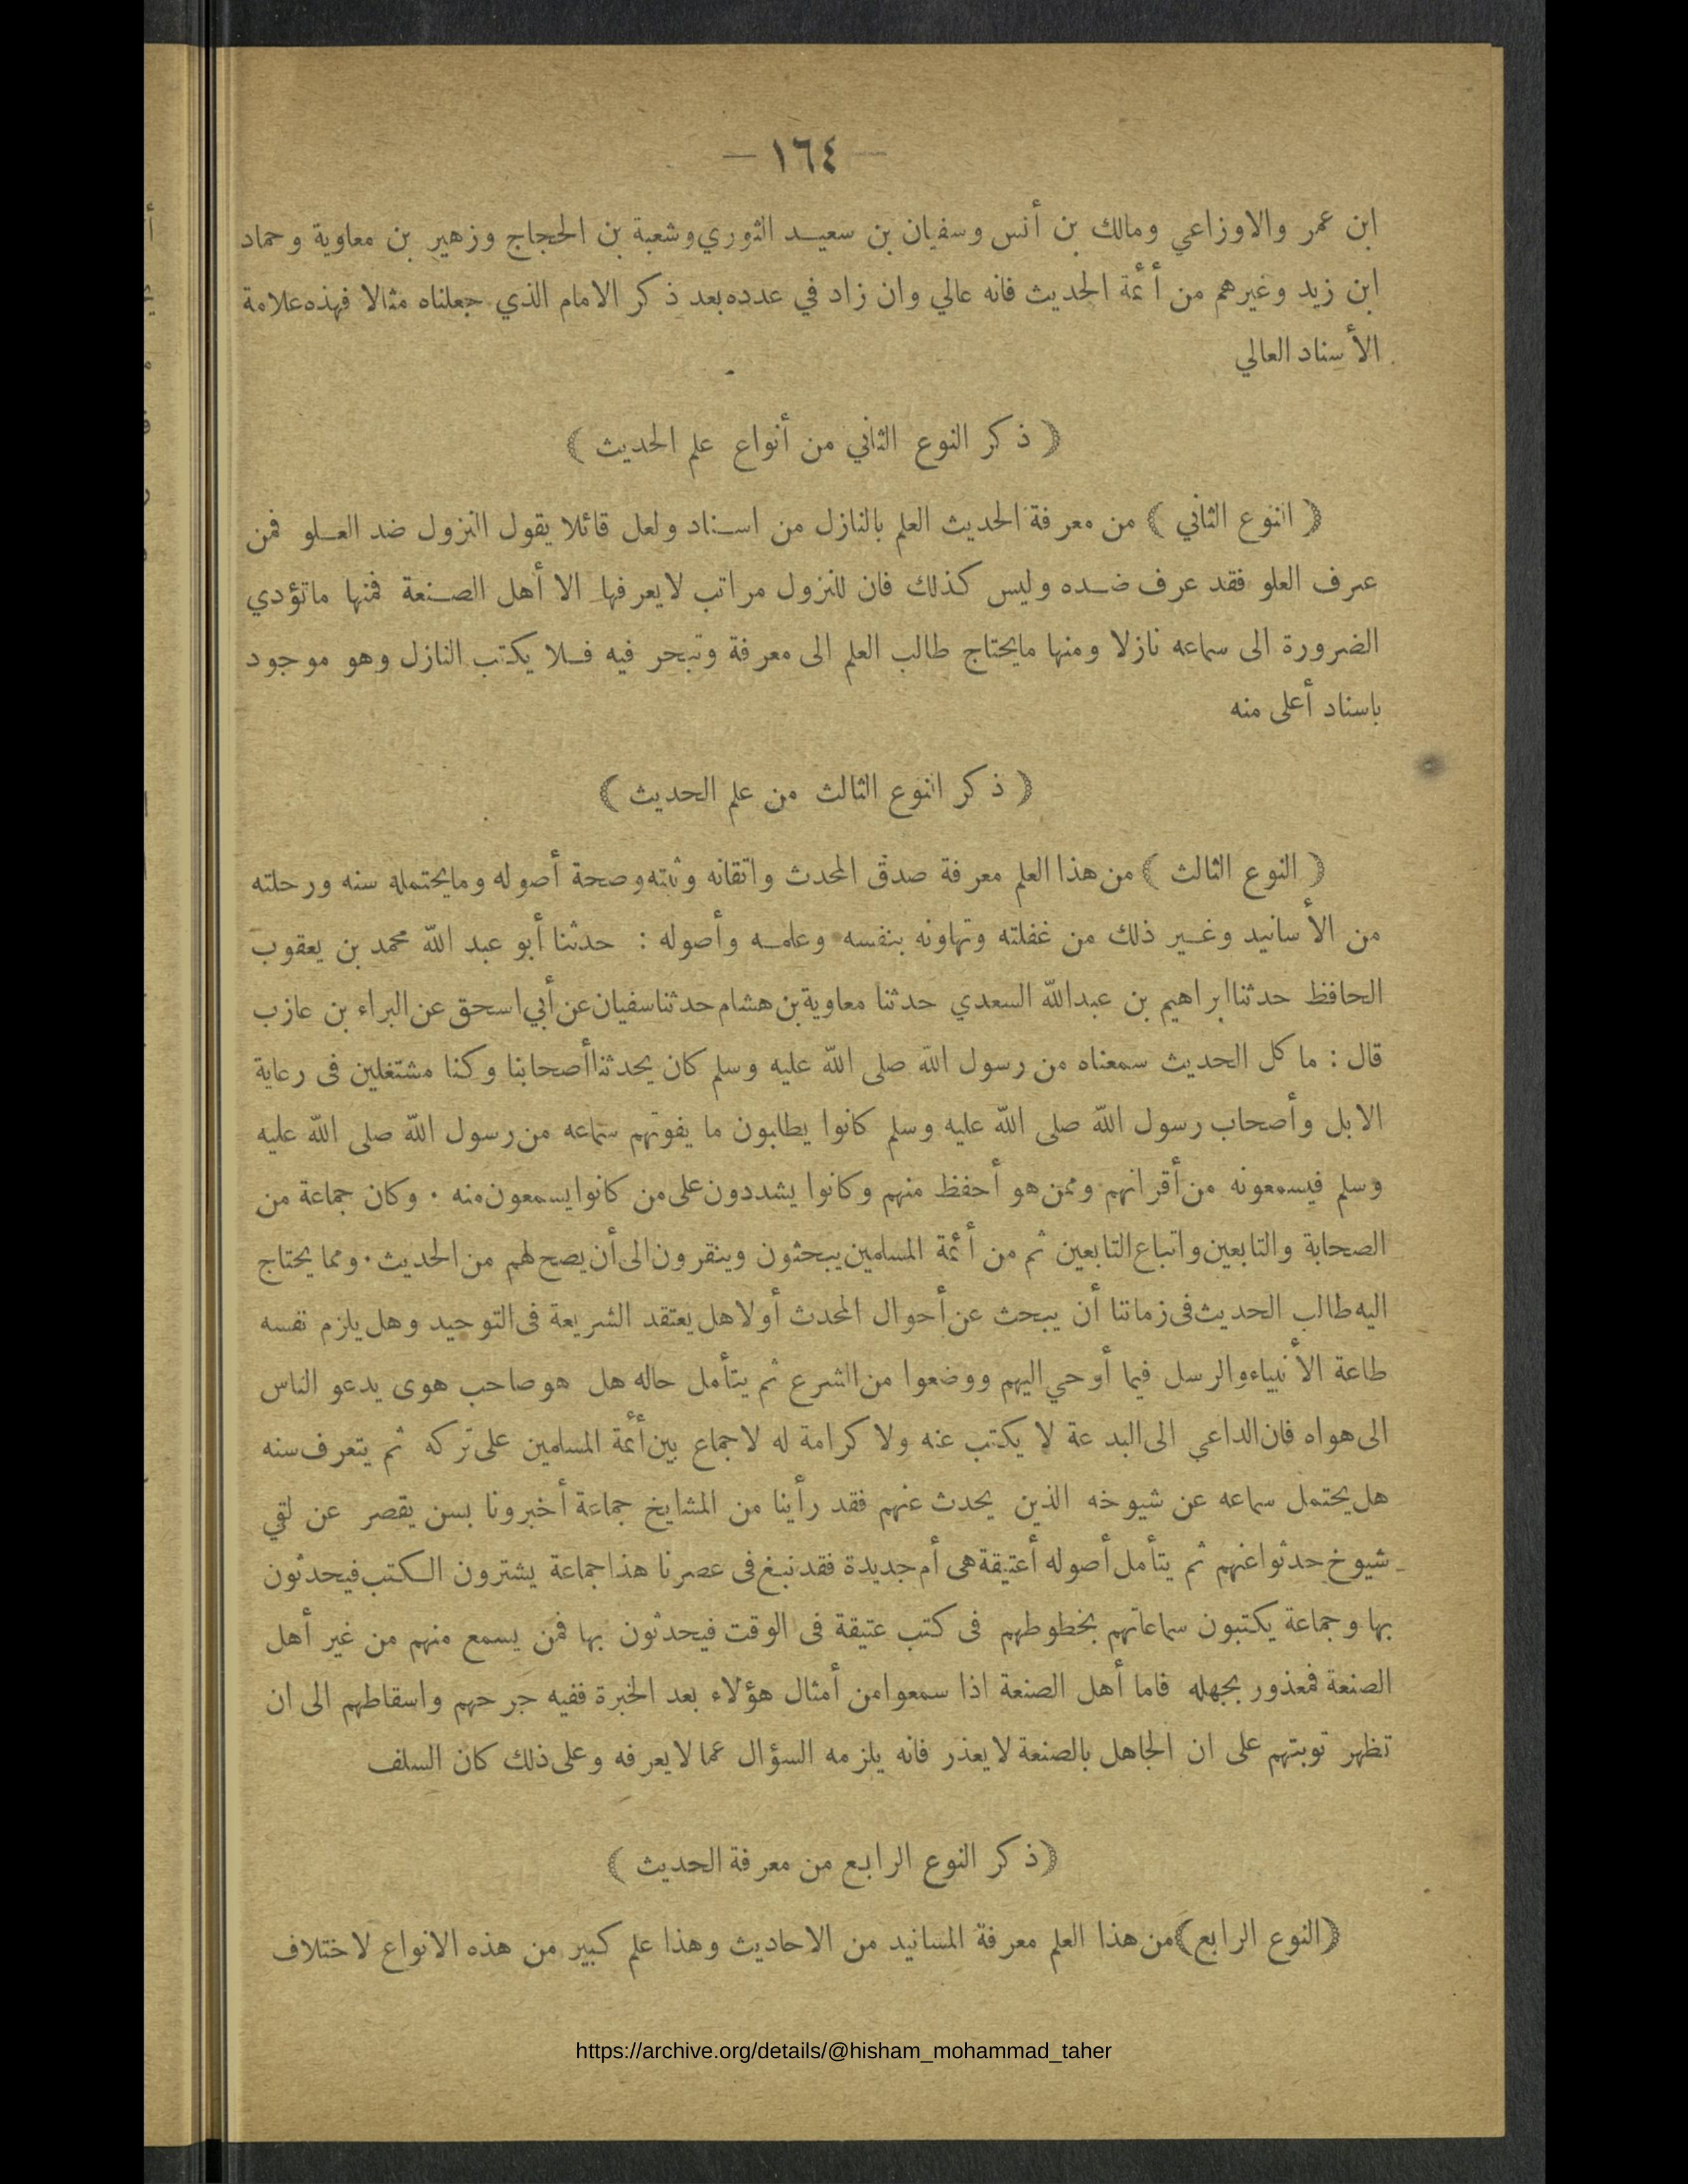 — ١٦٤ —
ابن عمر والاوزاعي ومالك بن أنس وسفيان بن سعيد الثوري وشعبة بن الحجاج وزهير بن معاوية وحماد
ابن زيد وغيرهم من أئمة الحديث فانه عالي وان زاد في عدده بعد ذكر الامام الذي جعلناه مثالا فهذه علامة
الأسناد العالي
﴿ ذكر النوع الثاني من أنواع علم الحديث ﴾
﴿ النوع الثاني ﴾ من معرفة الحديث العلم بالنازل من اسناد ولعل قائلا يقول النزول ضد العلو فمن
عرف العلو فقد عرف ضده وليس كذلك فان للنزول مراتب لايعرفها الا أهل الصنعة فمنها ماتؤدي
الضرورة الى سماعه نازلا ومنها مايحتاج طالب العلم الى معرفة وتبحر فيه فلا يكتب النازل وهو موجود
باسناد أعلى منه
﴿ ذكر النوع الثالث من علم الحديث ﴾
﴿ النوع الثالث ﴾ من هذا العلم معرفة صدق المحدث واتقانه وثبته وصحة أصوله ومايحتمله سنه ورحلته
من الأسانيد وغير ذلك من غفلته وتهاونه بنفسه وعلمه وأصوله : حدثنا أبو عبد الله محمد بن يعقوب
الحافظ حدثنا ابراهيم بن عبدالله السعدي حدثنا معاوية بن هشام حدثنا سفيان عن أبي اسحق عن البراء بن عازب
قال : ما كل الحديث سمعناه من رسول الله صلى الله عليه وسلم كان يحدثنا أصحابنا وكنا مشتغلين فى رعاية
الابل وأصحاب رسول الله صلى الله عليه وسلم كانوا يطلبون ما يفوتهم سماعه من رسول الله صلى الله عليه
وسلم فيسمعونه من أقرانهم وممن هو أحفظ منهم وكانوا يشددون على من كانوا يسمعون منه . وكان جماعة من
الصحابة والتابعين واتباع التابعين ثم من أئمة المسلمين يبحثون وينقرون الى أن يصح لهم من الحديث . ومما يحتاج
اليه طالب الحديث فى زماننا أن يبحث عن أحوال المحدث أولا هل يعتقد الشريعة فى التوحيد وهل يلزم نفسه
طاعة الأنبياء والرسل فيما أوحي اليهم ووضعوا من الشرع ثم يتأمل حاله هل هو صاحب هوى يدعو الناس
الى هواه فان الداعي الى البدعة لا يكتب عنه ولا كرامة له لاجماع بين أئمة المسلمين على تركه ثم يتعرف سنه
هل يحتمل سماعه عن شيوخه الذين يحدث عنهم فقد رأينا من المشايخ جماعة أخبرونا بسن يقصر عن لقي
شيوخ حدثوا عنهم ثم يتأمل أصوله أعتيقة هى أم جديدة فقد نبغ فى عصرنا هذا جماعة يشترون الكتب فيحدثون
بها وجماعة يكتبون سماعاتهم بخطوطهم فى كتب عتيقة فى الوقت فيحدثون بها فمن يسمع منهم من غير أهل
الصنعة فمعذور بجهله فاما أهل الصنعة اذا سمعوا من أمثال هؤلاء بعد الخبرة ففيه جرحهم واسقاطهم الى ان
تظهر توبتهم على ان الجاهل بالصنعة لايعذر فانه يلزمه السؤال عما لايعرفه وعلى ذلك كان السلف
﴿ ذكر النوع الرابع من معرفة الحديث ﴾
﴿ النوع الرابع ﴾ من هذا العلم معرفة المسانيد من الاحاديث وهذا علم كبير من هذه الانواع لاختلاف
https://archive.org/details/@hisham_mohammad_taher